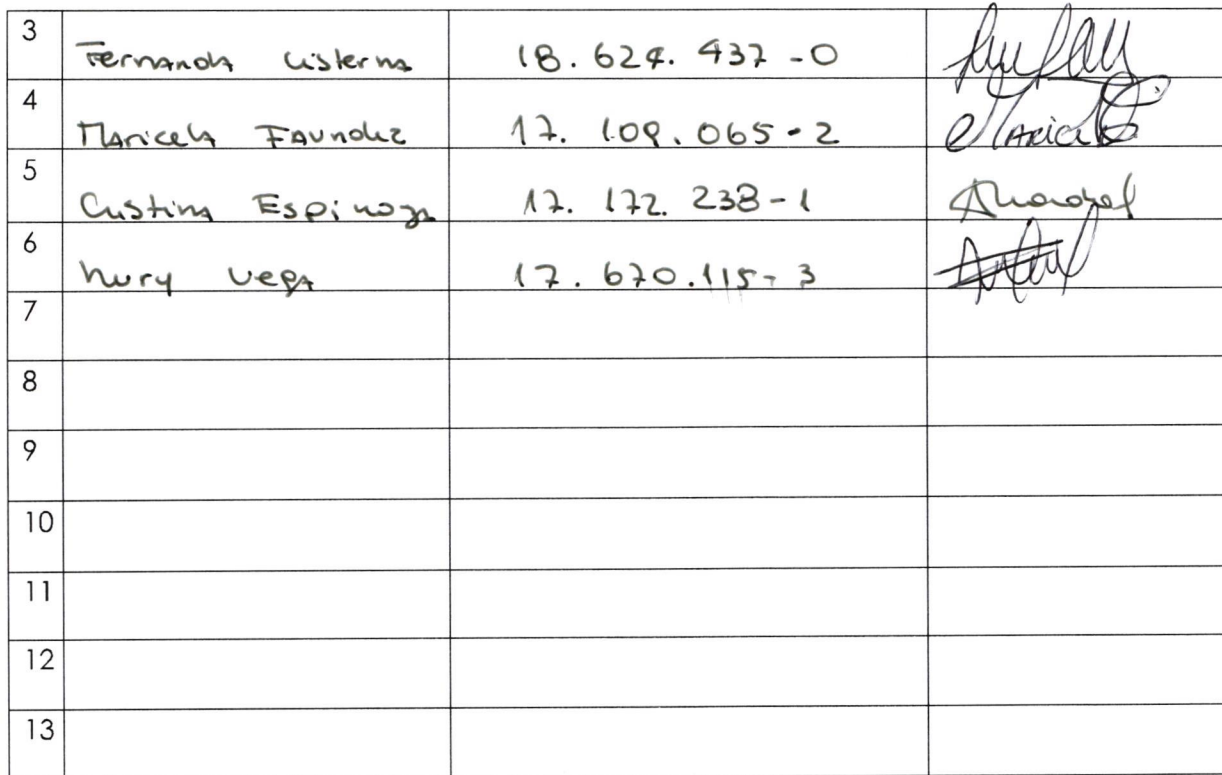 3 Fernanda Cisterna 18.624.437-0
4 Maricela Faundez 17.109.065-2
5 Cristina Espinoza 17.172.238-1
6 Nury Vega 17.670.115-3
7
8
9
10
11
12
13